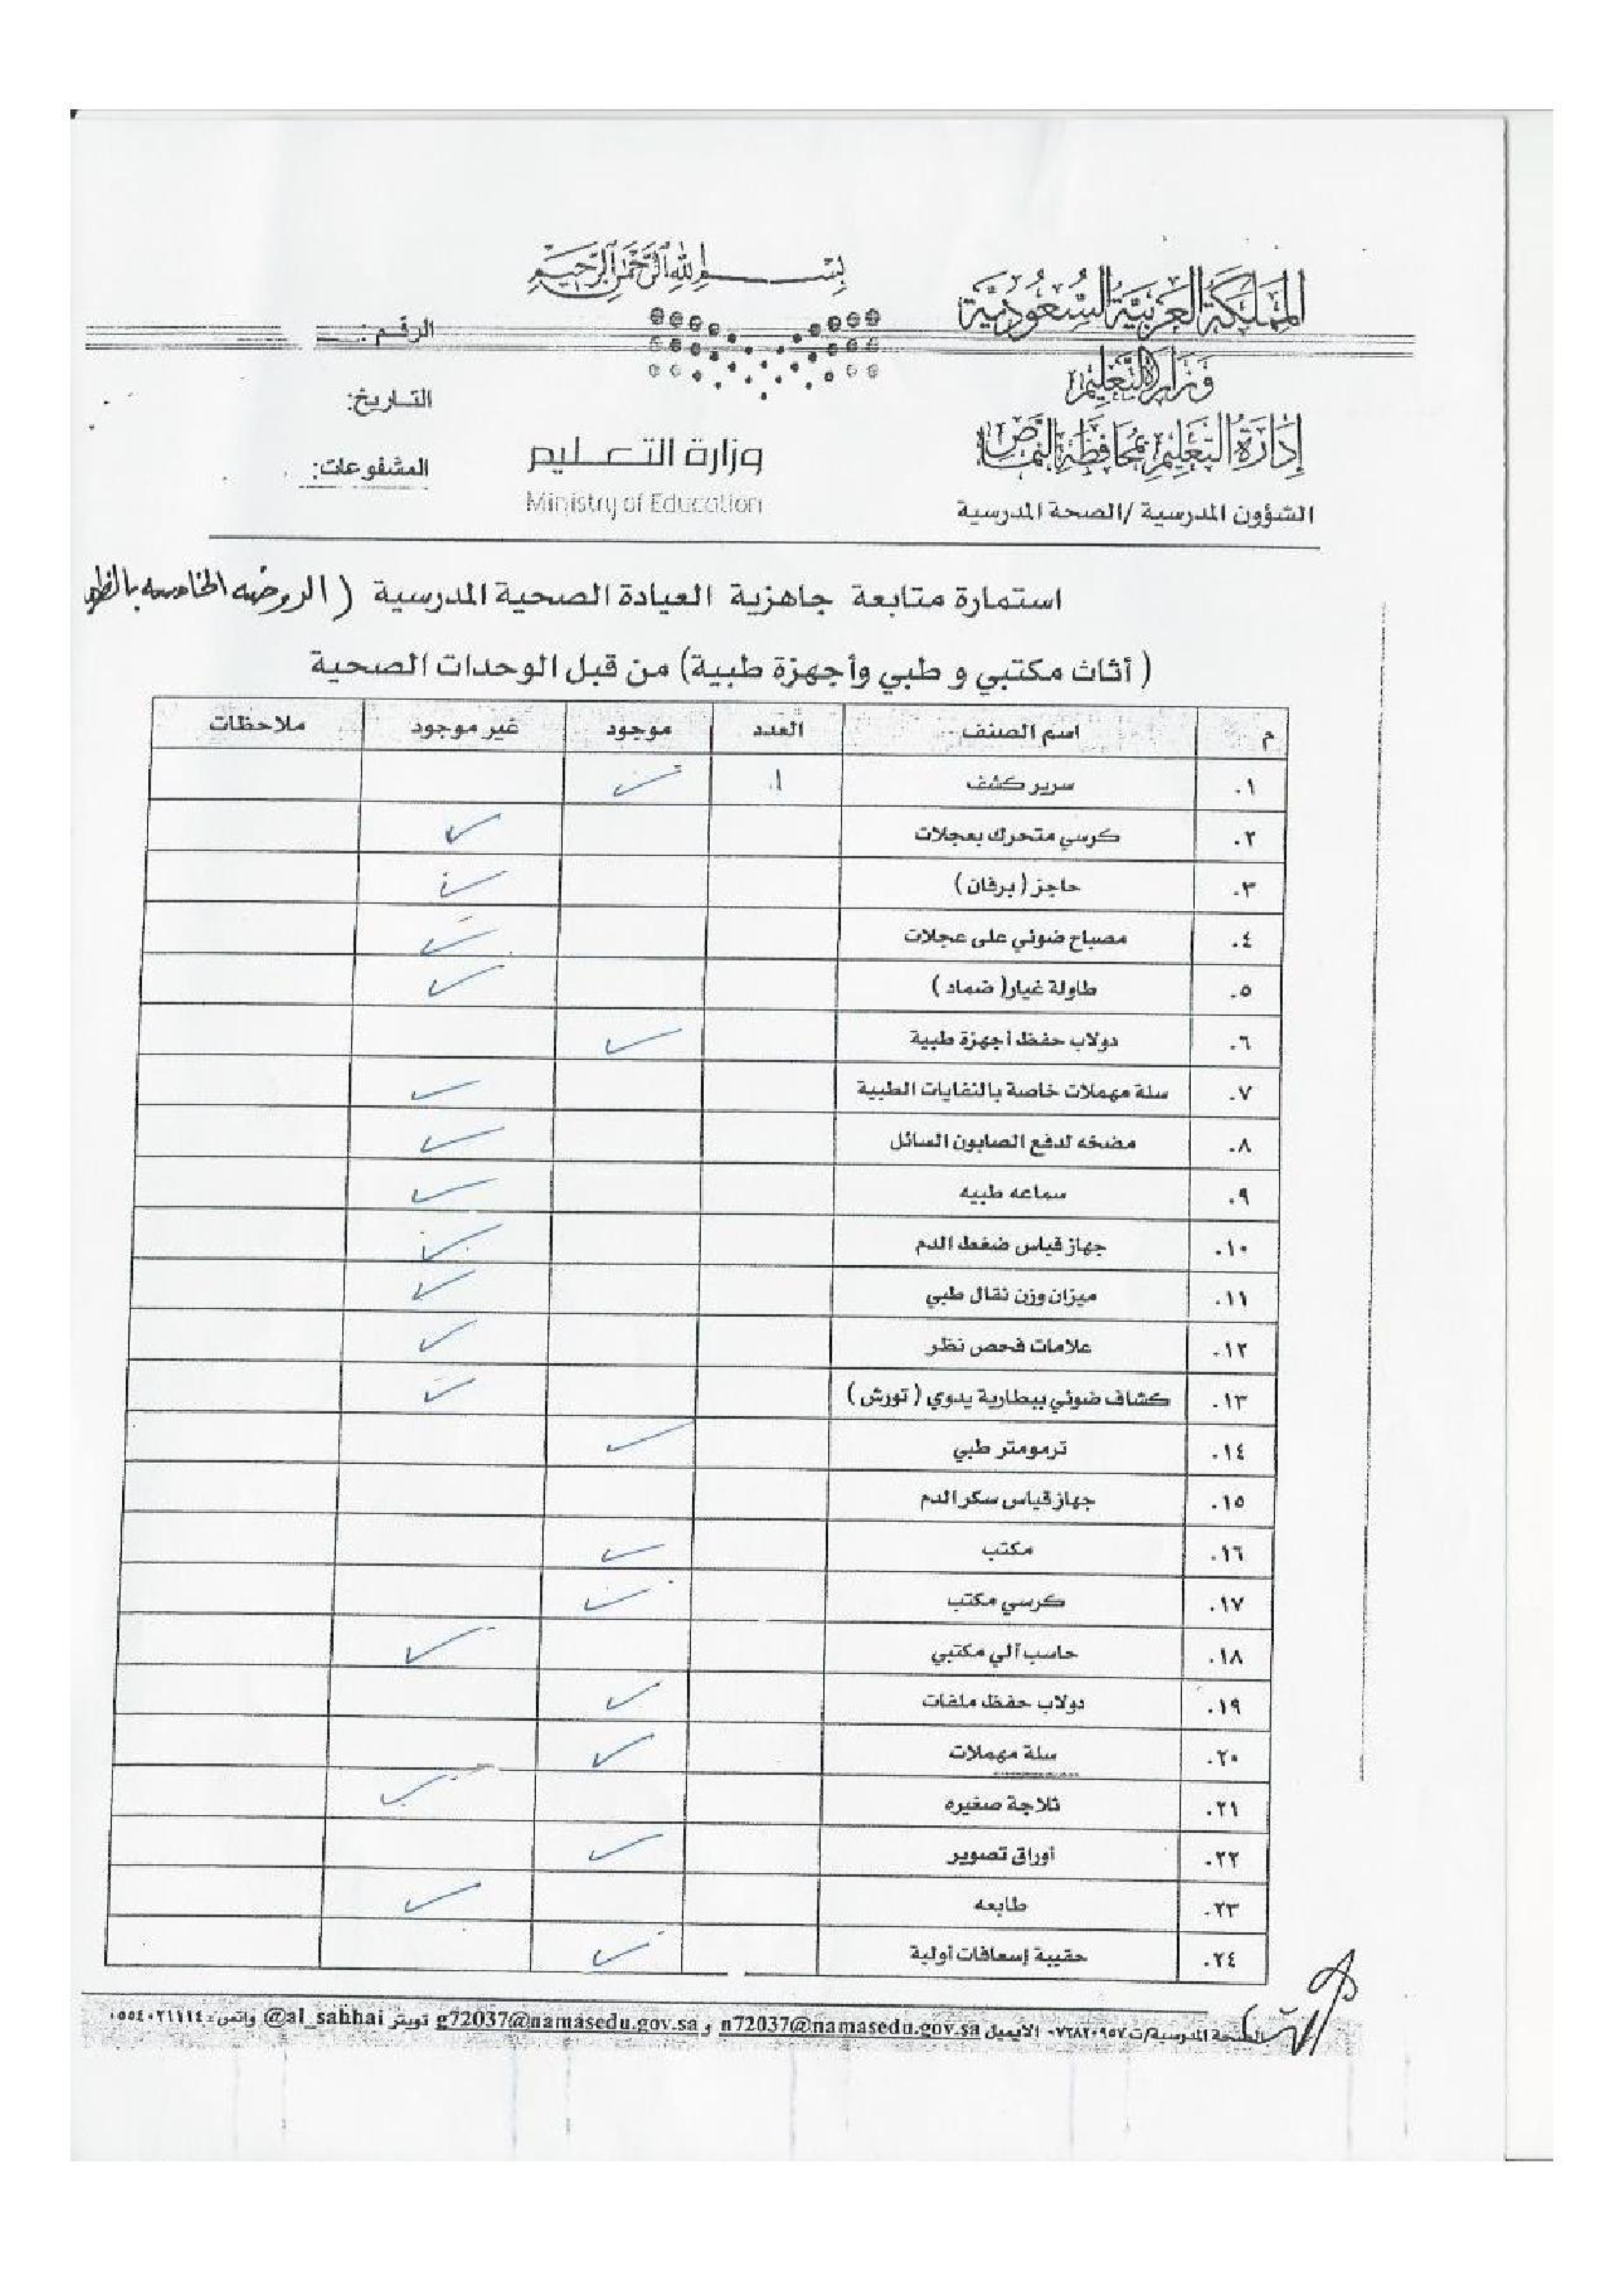 بسم الله الرحمن الرحيم
المملكة العربية السعودية
وزارة التعليم
إدارة التعليم بمحافظة النماص
الشؤون المدرسية /الصحة المدرسية
وزارة التعليم
Ministry of Education
الرقم:
التاريخ:
المشفوعات:
استمارة متابعة جاهزية العيادة الصحية المدرسية ( الروضه الخامسه
( أثاث مكتبي و طبي وأجهزة طبية) من قبل الوحدات الصحية
م اسم الصنف العدد موجود غير موجود ملاحظات
١. سرير كشف ١ ✓
٢. كرسي متحرك بعجلات ✓
٣. حاجز ( برفان ) ✓
٤. مصباح ضوئي على عجلات ✓
٥. طاولة غيار( ضماد ) ✓
٦. دولاب حفظ أجهزة طبية ✓
٧. سلة مهملات خاصة بالنفايات الطبية ✓
٨. مضخه لدفع الصابون السائل ✓
٩. سماعه طبيه ✓
١٠. جهاز قياس ضغط الدم ✓
١١. ميزان وزن نقال طبي ✓
١٢. علامات فحص نظر ✓
١٣. كشاف ضوئي ببطارية يدوي ( تورش ) ✓
١٤. ترمومتر طبي ✓
١٥. جهاز قياس سكر الدم
١٦. مكتب ✓
١٧. كرسي مكتب ✓
١٨. حاسب آلي مكتبي ✓
١٩. دولاب حفظ ملفات ✓
٢٠. سلة مهملات ✓
٢١. ثلاجة صغيره ✓
٢٢. أوراق تصوير ✓
٢٣. طابعه ✓
٢٤. حقيبة إسعافات أولية ✓
الصحة المدرسية/ت ٠٧٢٨٢٠٩٥٧ الايميل n72037@namasedu.gov.sa و g72037@namasedu.gov.sa تويتر @al_sahhai واتس: ٠٥٥٤٠٢١١١٤